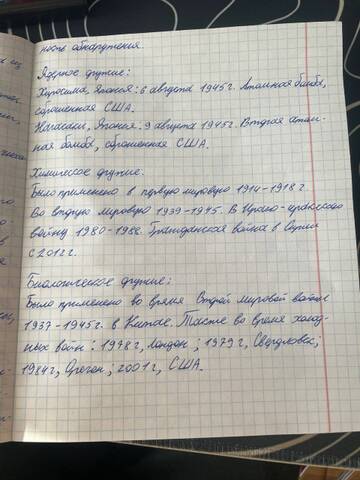 ность обнаружения.
Ядерное оружие:
Хиросима, Япония: 6 августа 1945г. Атомная бомба,
сброшенная США.
Нагасаки, Япония: 9 августа 1945г. Вторая атом-
ная бомба, сброшенная США.
Химическое оружие:
Было применено в первую мировую 1914-1918 г.
Во вторую мировую 1939-1945. В Ирано-иракскую
войну 1980-1988. Гражданская война в Сирии
с 2012 г.
Биологическое оружие:
Было применено во время Второй мировой войны
1937-1945г. в Китае. Также во время холод-
ных войн: 1978г, Лондон; 1979г, Свердловск;
1984г, Орегон; 2001г, США.